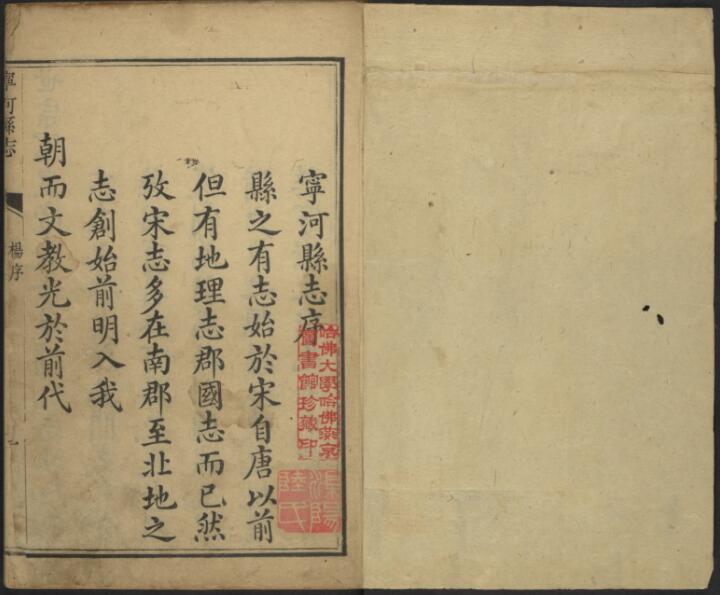 寧河縣志序
縣之有志始於宋自唐以前
但有地理志郡國志而已然
攷宋志多在南郡至北地之
志創始前明入我
朝而文教光於前代
寧河縣志
楊序
一
哈佛大學哈佛燕京
圖書館珍藏印
陸氏